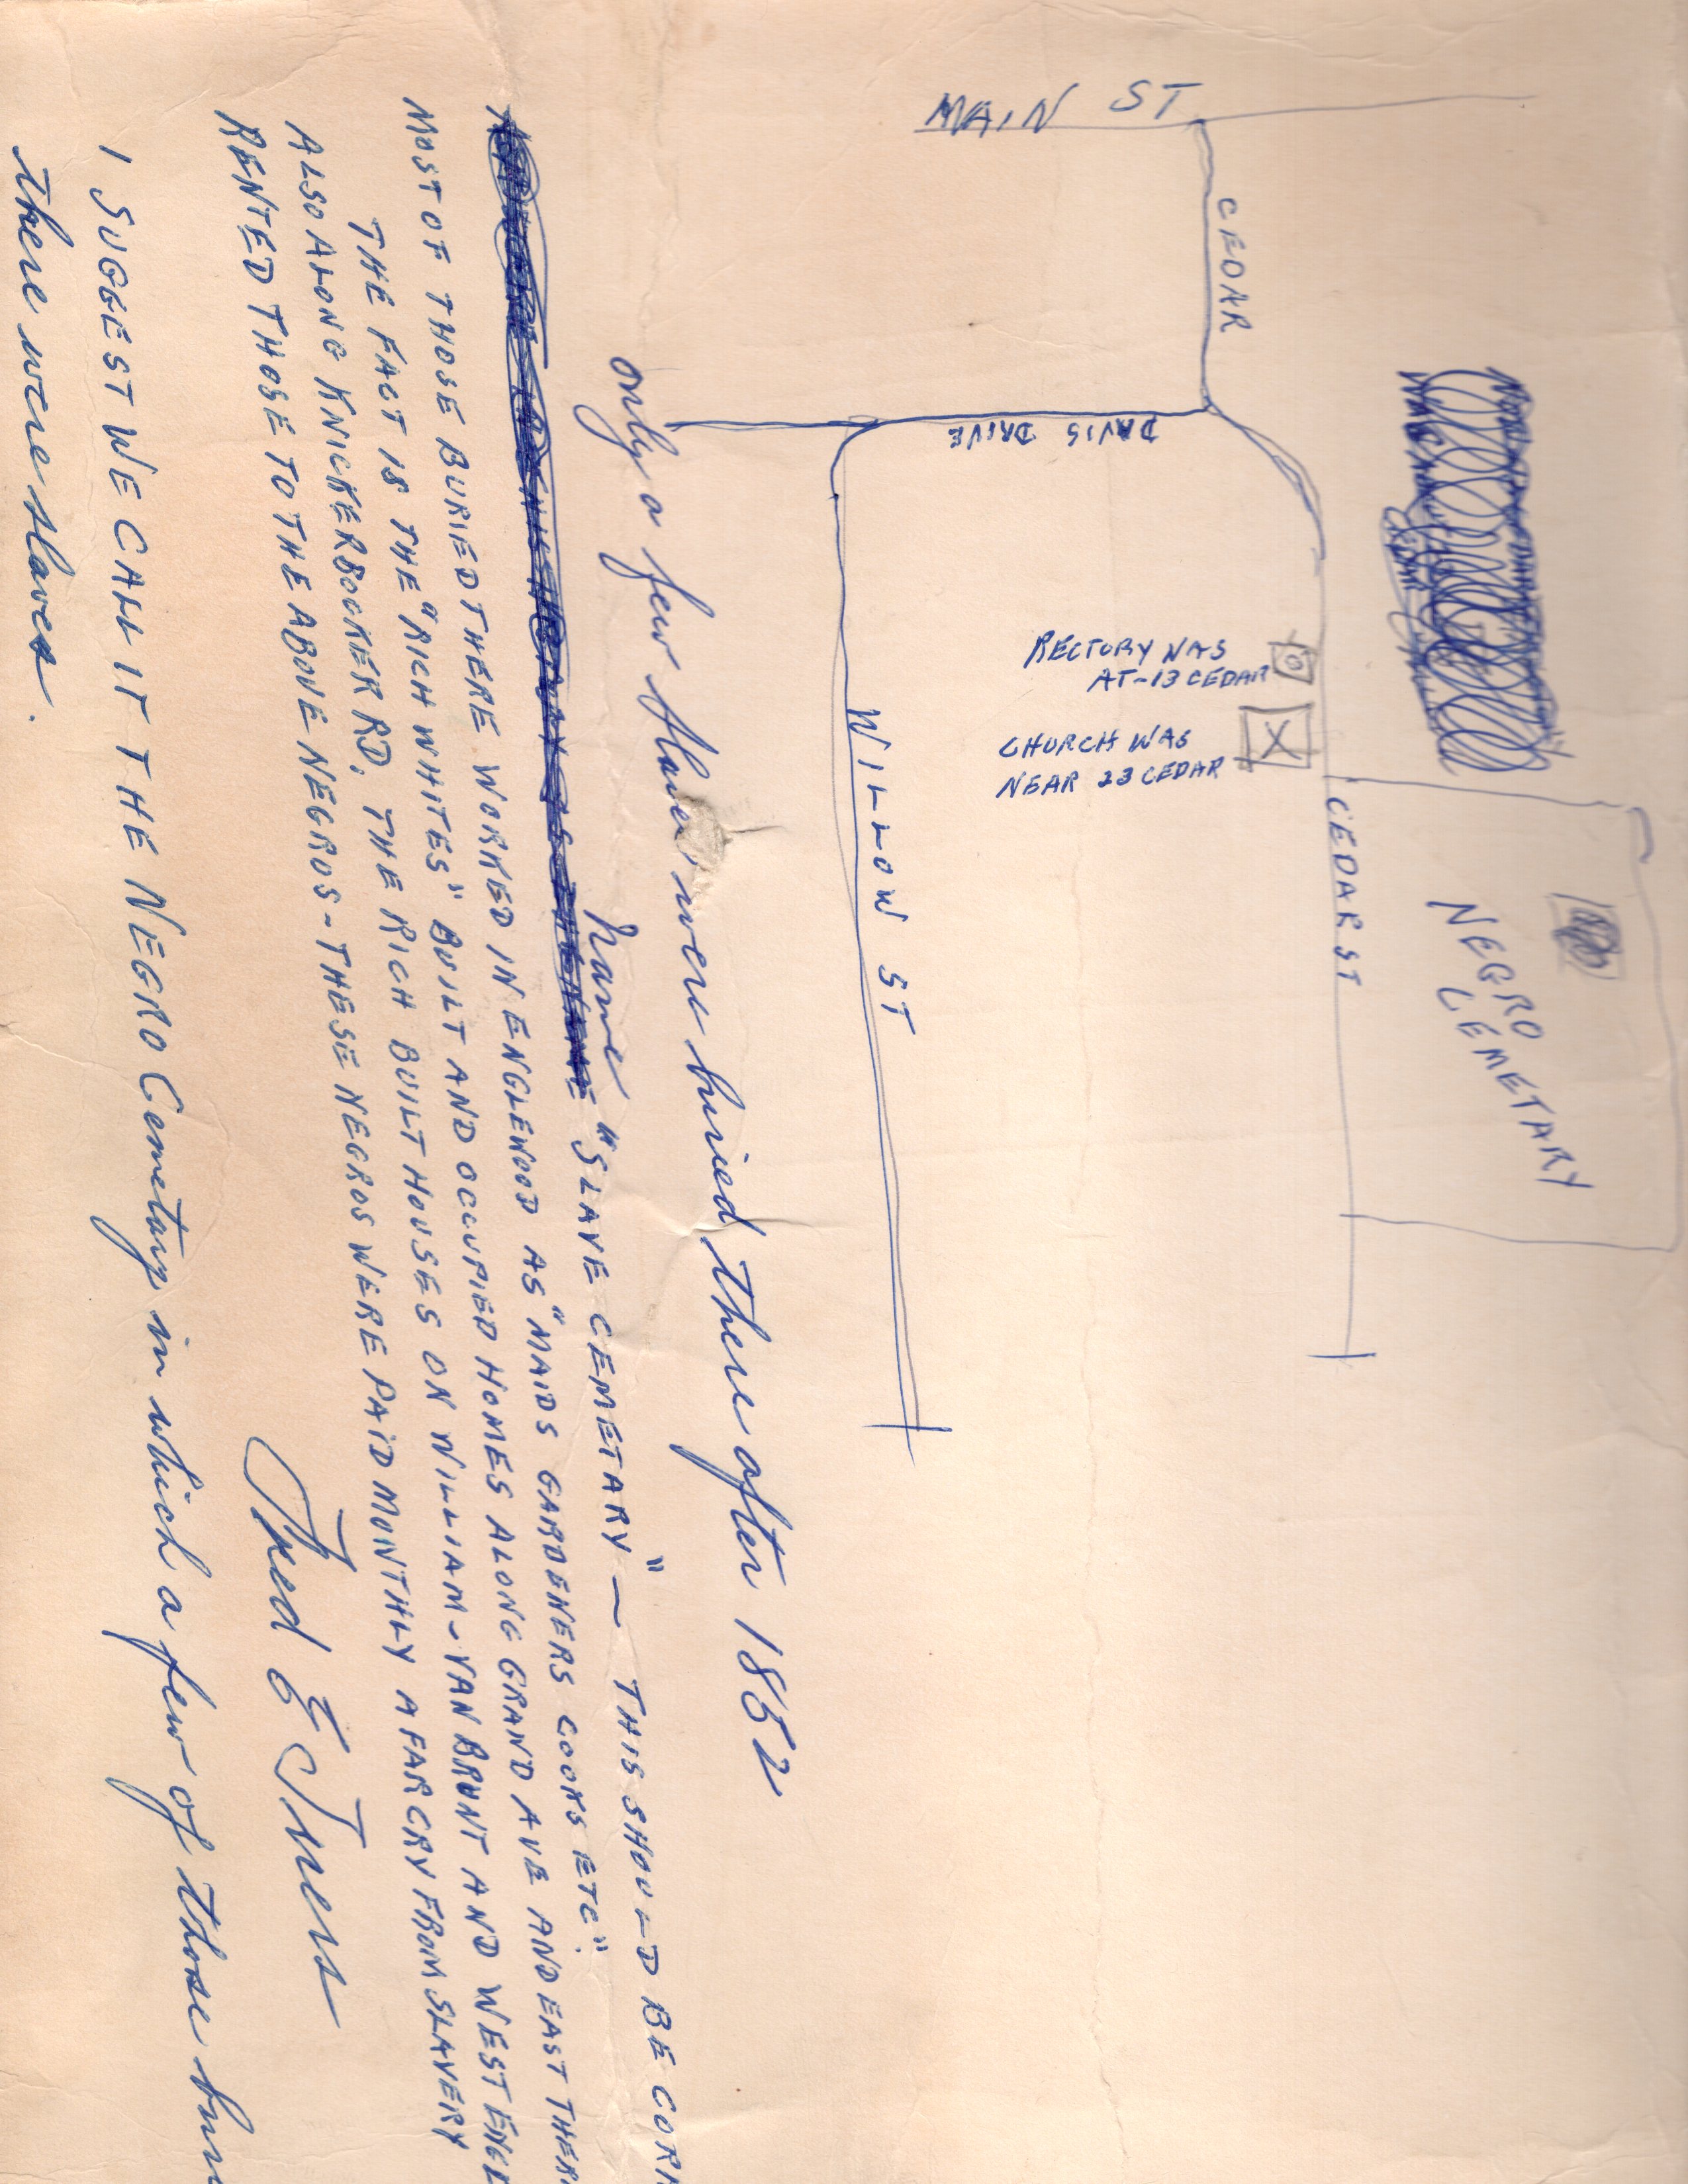 NEGRO
CEMETARY
CEDAR
CEDAR ST
MAIN ST
DAVIS DRIVE
RECTORY WAS
AT-13 CEDAR
CHURCH WAS
NEAR 23 CEDAR
WILLOW ST
only a few slaves were buried there after 1852
name "SLAVE CEMETARY" — THIS SHOULD BE CORR
MOST OF THOSE BURIED THERE WORKED IN ENGLEWOOD AS "MAIDS GARDENERS COOKS ETC".
THE FACT IS THE "RICH WHITES" BUILT AND OCCUPIED HOMES ALONG GRAND AVE AND EAST THER
ALSO ALONG KNICKERBOCKER RD. THE RICH BUILT HOUSES ON WILLIAM-VAN BRUNT AND WEST ENGL
RENTED THOSE TO THE ABOVE NEGROS-THESE NEGROS WERE PAID MONTHLY A FAR CRY FROM SLAVERY
I SUGGEST WE CALL IT THE NEGRO Cemetary in which a few of those buri
there were slaves.